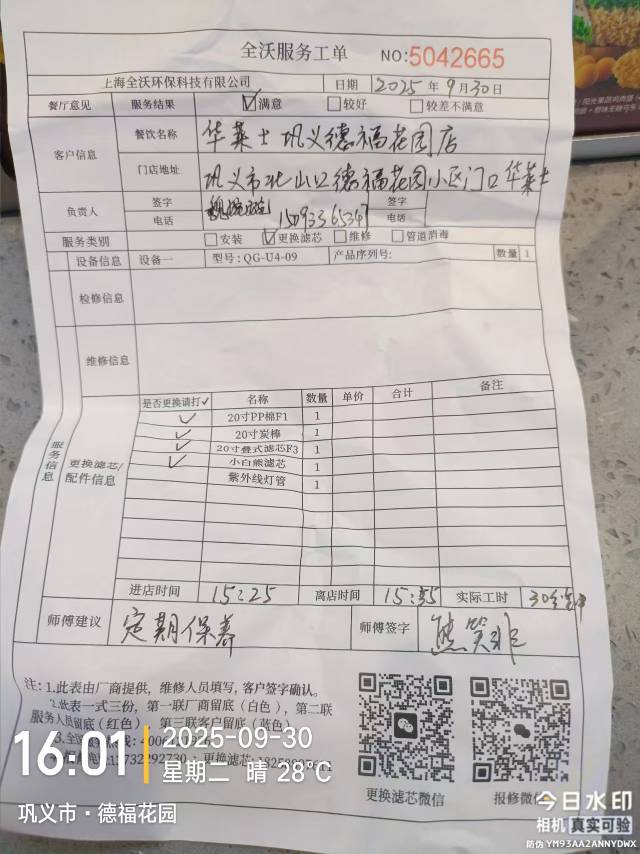 全沃服务工单 NO:5042665
上海全沃环保科技有限公司 日期 2025年9月30日
餐厅意见 服务结果 ☑满意 □较好 □较差不满意
客户信息 餐饮名称 华莱士巩义德福花园店
门店地址 巩义市北山口德福花园小区门口华莱士
负责人 签字 签字
电话 15093365347 电话
服务类别 □安装 ☑更换滤芯 □维修 □管道消毒
设备信息 设备一 型号:QG-U4-09 产品序列号: 数量 1
检修信息
维修信息
服务信息
更换滤芯/配件信息
是否更换请打✓ 名称 数量 单价 合计 备注
✓ 20寸PP棉F1 1
✓ 20寸炭棒 1
✓ 20寸叠式滤芯F3 1
✓ 小白熊滤芯 1
紫外线灯管 1
进店时间 15:25 离店时间 15:55 实际工时 30分钟
师傅建议 定期保养 师傅签字
注: 1.此表由厂商提供，维修人员填写，客户签字确认。
2.此表一式三份，第一联厂商留底（白色），第二联
服务人员留底（红色） 第三联客户留底（蓝色）
更换滤芯微信 报修微信
16:01 2025-09-30
星期二 晴 28℃
巩义市·德福花园
今日水印
相机 真实可验
防伪 YM93AA2ANNYDWX